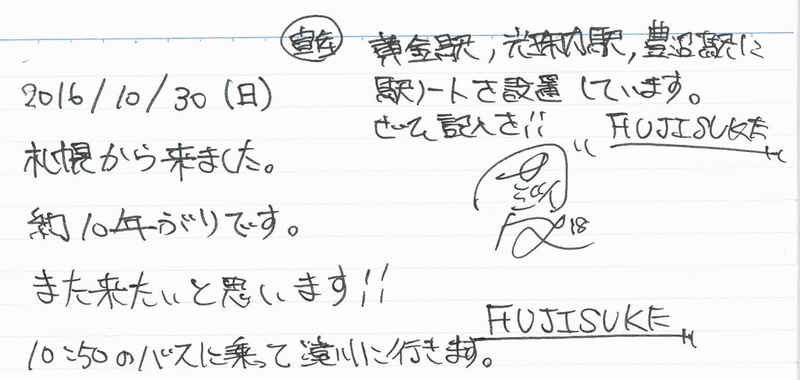 宣伝 黄金駅，光珠内駅，豊沼駅に
駅ノートを設置しています。
ぜひ記入を!!
FUJISUKE
2016/10/30（日）
札幌から来ました。
約10年ぶりです。
また来たいと思います!!
10:50のバスに乗って滝川に行きます。
FUJISUKE